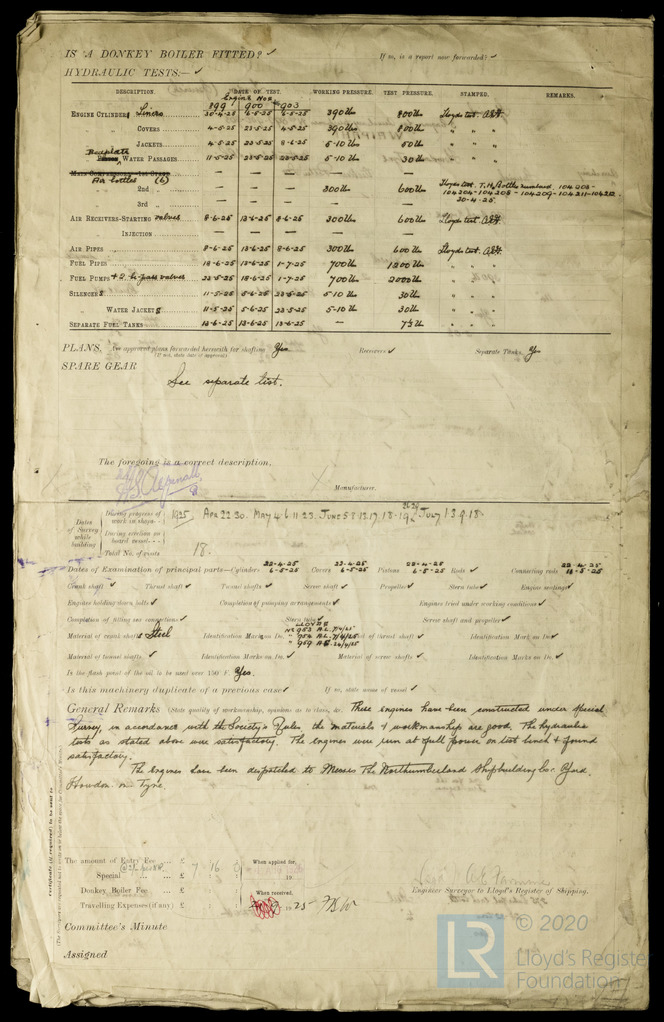 IS A DONKEY BOILER FITTED? ✓ If so, is a report now forwarded? ✓
HYDRAULIC TESTS:— ✓
DESCRIPTION. DATE OF TEST. WORKING PRESSURE. TEST PRESSURE. STAMPED. REMARKS.
Engine Nos
899 900 903
ENGINE CYLINDERS Liners 30-4-25 6-5-25 6-5-25 390 lb 800 lb Lloyds test.
„ COVERS 4-5-25 23-5-25 4-5-25 390 lb 800 lb „ „ „
„ JACKETS 4-5-25 23-5-25 8-6-25 5-10 lb 50 lb „ „ „
Bedplate WATER PASSAGES 11-5-25 23-5-25 23-5-25 5-10 lb 30 lb „ „ „
MAIN COMPRESSOR—1st STAGE — — — — —
Air bottles (6)
„ 2nd „ — — — 300 lb 600 lb Lloyds test.
104204-104205-104209-104211-104212
30-4-25.
„ 3rd „ — — — — —
AIR RECEIVERS—STARTING valves 8-6-25 13-6-25 8-6-25 300 lb 600 lb Lloyds test.
„ INJECTION — — — — —
AIR PIPES 8-6-25 13-6-25 8-6-25 300 lb 600 lb Lloyds test.
FUEL PIPES 18-6-25 13-6-25 1-7-25 700 lb 1200 lb „ „ „
FUEL PUMPS + 2 bi-pass valves 23-5-25 18-6-25 1-7-25 700 lb 2000 lb „ „ „
SILENCERS 11-5-25 5-6-25 23-5-25 5-10 lb 30 lb „ „ „
„ WATER JACKETS 11-5-25 5-6-25 23-5-25 5-10 lb 30 lb „ „ „
SEPARATE FUEL TANKS 13-6-25 13-6-25 13-6-25 — 7½ lb „ „ „
PLANS. Are approved plans forwarded herewith for shafting Yes Receivers ✓ Separate Tanks. Yes
(If not, state date of approval)
SPARE GEAR
See separate list.
The foregoing is a correct description,
Manufacturer.
Dates of Survey while building
During progress of work in shops-- 1925 Apr 22 30. May 4 6 11 23. June 5 8 13 17 18 19 July 1 3 9 18
During erection on board vessel---
Total No. of visits 18.
Dates of Examination of principal parts—Cylinders 6-5-25 Covers 23-4-25 6-5-25 Pistons 6-5-25 Rods ✓ Connecting rods
Crank shaft ✓ Thrust shaft ✓ Tunnel shafts ✓ Screw shaft ✓ Propeller ✓ Stern tube ✓ Engine seatings ✓
Engines holding down bolts ✓ Completion of pumping arrangements ✓ Engines tried under working conditions ✓
Completion of fitting sea connections ✓ Stern tube ✓ Screw shaft and propeller ✓
Material of crank shafts Steel Identification Mark on Do. LLOYDS Material of thrust shaft ✓ Identification Mark on Do. ✓
Material of tunnel shafts ✓ Identification Marks on Do. ✓ Material of screw shafts ✓ Identification Marks on Do. ✓
Is the flash point of the oil to be used over 150°F. Yes.
Is this machinery duplicate of a previous case ✓ If so, state name of vessel ✓
General Remarks (State quality of workmanship, opinions as to class, &c. These engines have been constructed under Special
Survey, in accordance with the Society's Rules the materials & workmanship are good. The hydraulic
tests as stated above were satisfactory. The engines were run at full power on test bench & found
satisfactory.
The engines have been despatched to Messrs The Northumberland Shipbuilding Co. Yard.
Howdon on Tyne.
Certificate (if required) to be sent to
The amount of Entry Fee ... £ When applied for,
Special ... £ 7 : 16 : 0 19
Donkey Boiler Fee ... £ When received,
Travelling Expenses (if any) £ 19 25
Engineer Surveyor to Lloyd's Register of Shipping.
Committee's Minute
Assigned
© 2020
LR
Lloyd's Register
Foundation